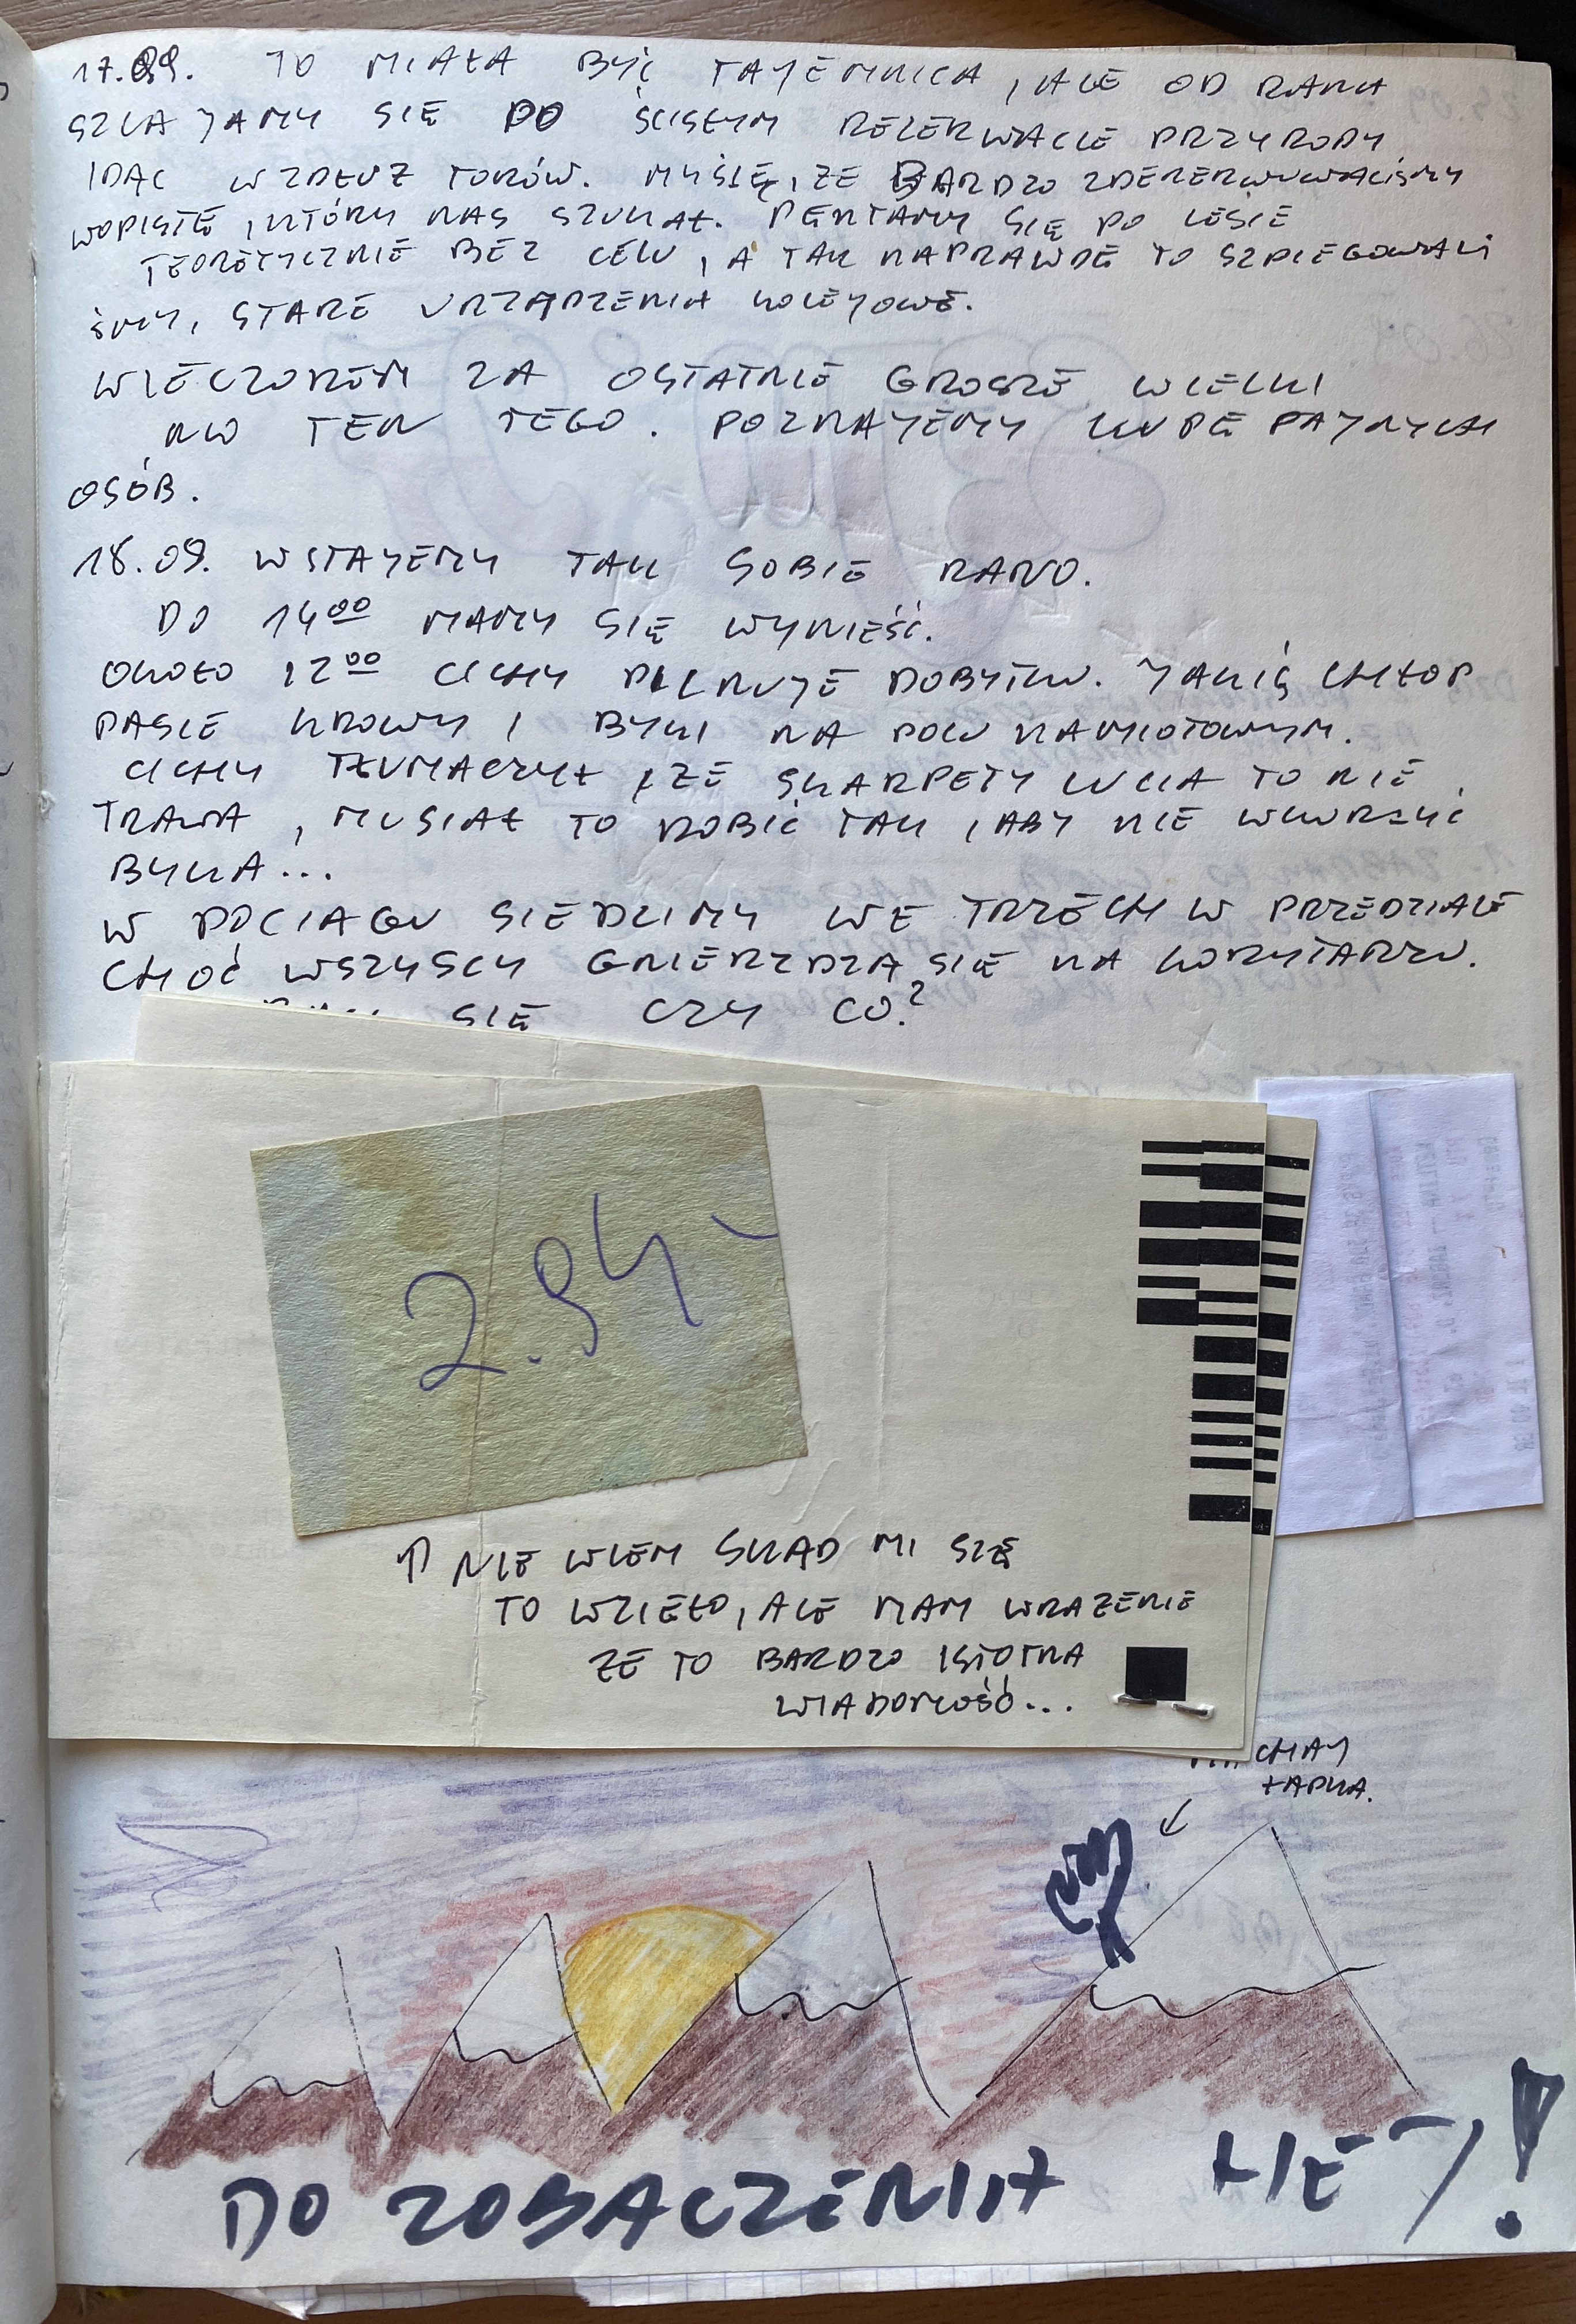 17.09. TO MIAŁA BYĆ TAJEMNICA, ALE OD RANA
SZLAJAMY SIĘ PO ŚCISŁYM REZERWACIE PRZYRODY
IDĄC WZDŁUŻ TORÓW. MYŚLĘ, ŻE BARDZO ZDENERWOWALIŚMY
WOPISTĘ, KTÓRY NAS SZUKAŁ. PENTAMY SIĘ PO LESIE
TEORETYCZNIE BEZ CELU, A TAK NAPRAWDĘ TO SZPIEGOWALI
ŚMY, STARE URZĄDZENIA KOLEJOWE.
WIECZOREM ZA OSTATNIE GROSZE WIELKI
NO TEN TEGO. POZNAJEMY KUPĘ FAJNYCH
OSÓB.
18.09. WSTAJEMY TAK SOBIE RANO.
DO 14⁰⁰ MAMY SIĘ WYNIEŚĆ.
OKOŁO 12⁰⁰ CICHY PILNUJE DOBYTKU. JAKIŚ CHŁOP
PASIE KROWY I BYKI NA POLU NAMIOTOWYM.
CICHY TŁUMACZYŁ, ŻE SKARPETY LUCJA TO NIE
TRAWA, MUSIAŁ TO ROBIĆ TAK, ABY NIE WKURZYĆ
BYKA...
W POCIĄGU SIEDZIMY WE TRZECH W PRZEDZIALE
CHOĆ WSZYSCY GNIEŻDŻĄ SIĘ NA KORYTARZU.
SIĘ CZY CO?
2.94,-
↑ NIE WIEM SKĄD MI SIĘ
TO WZIEŁO, ALE MAM WRAŻENIE
ŻE TO BARDZO ISTOTNA
WIADOMOŚĆ...
ŁAPKA.
↙
DO ZOBACZENIA HEJ!